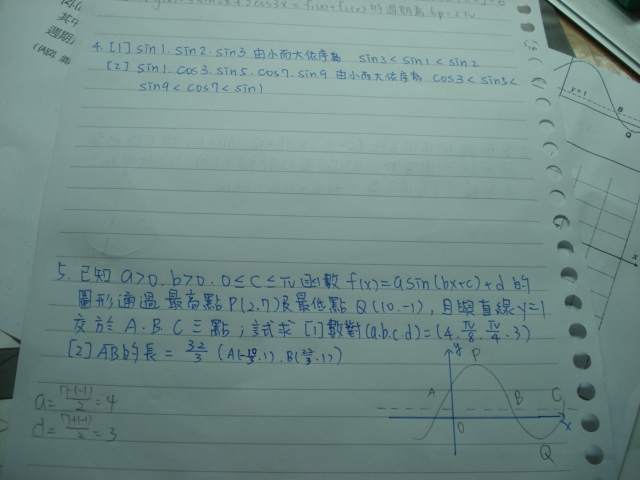 2cos3x = f₁(x)+f₂(x) 的週期為
4. [1] sin1. sin2. sin3 由小而大依序為 sin3 < sin1 < sin2
[2] sin1. cos3. sin5. cos7. sin9 由小而大依序為 cos3 < sin5 <
sin9 < cos7 < sin1
5. 已知 a>0. b>0. 0≤c≤π 函數 f(x)=asin(bx+c)+d 的
圖形通過 最高點 P(2.7)及最低點 Q(10.-1), 且與直線 y=1
交於 A. B. C 三點; 試求 [1] 數對(a.b.c.d)=(4. π/8. π/4. 3)
[2] AB的長 = 32/3 (A(-10/3.1). B(22/3.1))
a= 7-(-1)/2 = 4
d= 7+(-1)/2 = 3
y
P
A
B
C
0
x
Q
y=1
B
Q
x